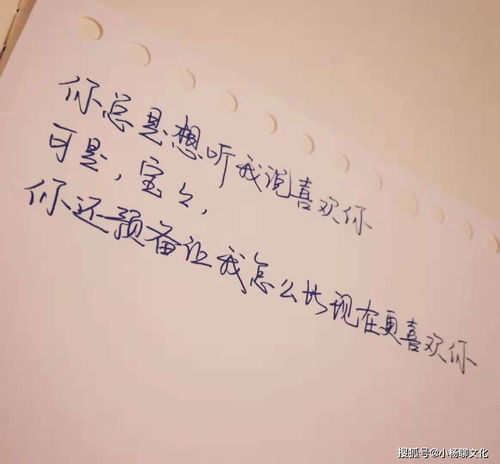 你总是想听我说喜欢你
可是，宝宝，
你还预备让我怎么比现在更喜欢你
搜狐号@小杨聊文化